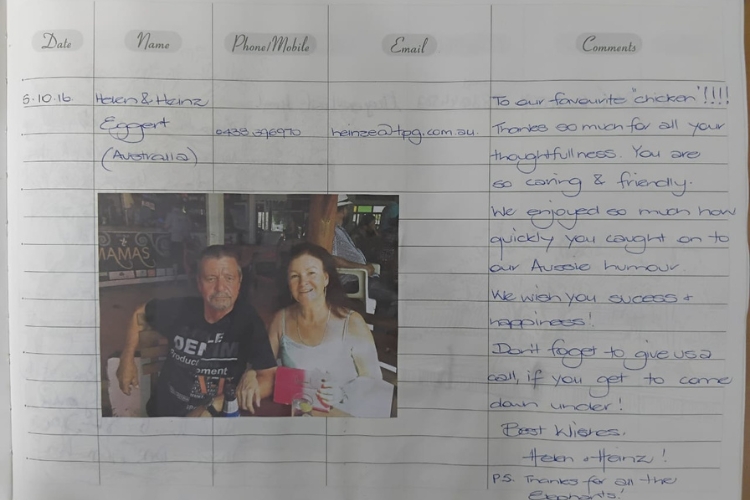 Date Name Phone/Mobile Email Comments
5.10.16. Helen & Heinz To our favourite "chicken"!!!!
Eggert 0438 396970 heinzea@tpg.com.au. Thanks so much for all your
(Australia) thoughtfullness. You are
so caring & friendly.
We enjoyed so much how
quickly you caught on to
our Aussie humour
We wish you sucess &
happiness!
Don't foget to give us a
call, if you get to come
down under!
Best Wishes.
Helen & Heinz!
P.S. Thanks for all the
elephants!
MAMAS
DENIM
Product
ement